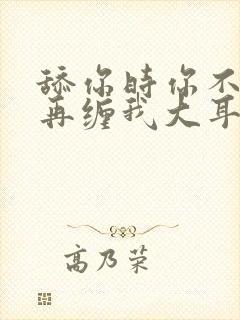 舔你时你不
再缠我大耳
高乃荣